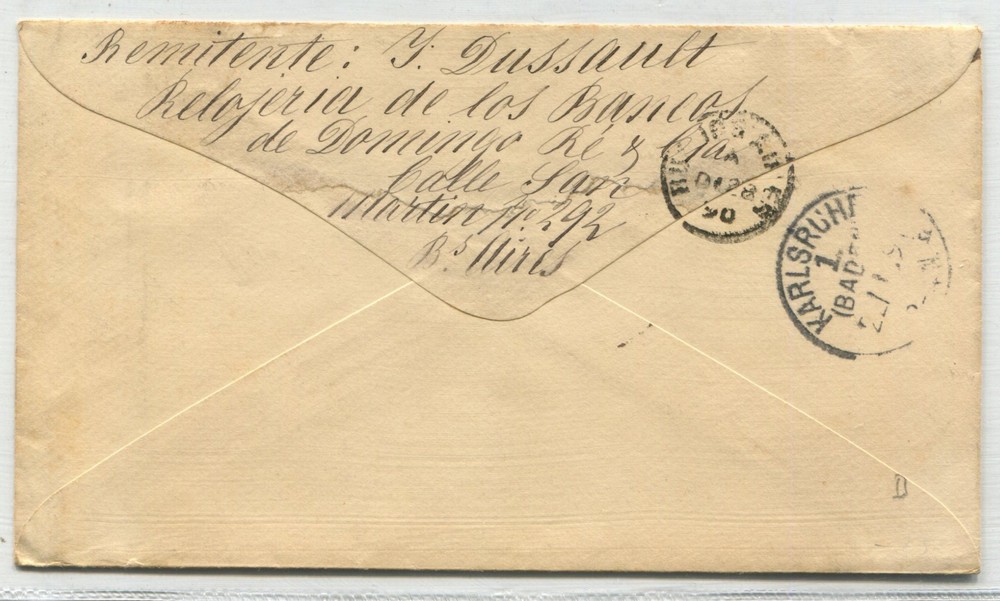 Remitente: J. Dussault
Relojeria de los Bancos
de Domingo Ré & Cia
Calle San
Martin No. 292
Bs Aires
BUENOS AIRES
A
DC 28
90
KARLSRUHE
1.
(BADEN
D